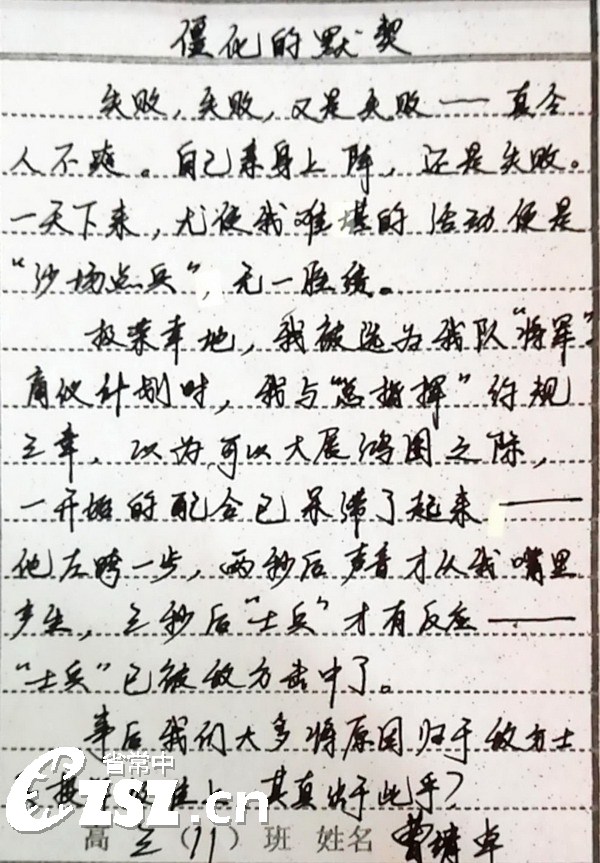 僵化的默契
失败，失败，又是失败——真令
人不爽。自己亲身上阵，还是失败。
一天下来，尤使我难堪的活动便是
“沙场点兵”，无一胜绩。
极荣幸地，我被选为我队“将军”，
商议计划时，我与“总指挥”约规
立章，以为可以大展鸿图之际，
一开始的配合已呆滞了起来——
他左跨一步，两秒后声音才从我嘴里
产生，三秒后“士兵”才有反应——
“士兵”已被敌方击中了。
事后我们大多将原因归于敌方士
上，其真出于此乎？
省常中
czsz.cn
高三（11）班 姓名 曹靖卓